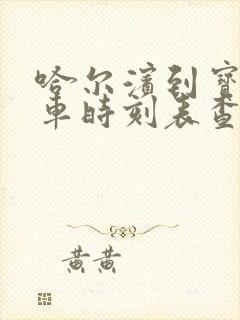 哈尔滨到宝
車時刻表查
黄黄